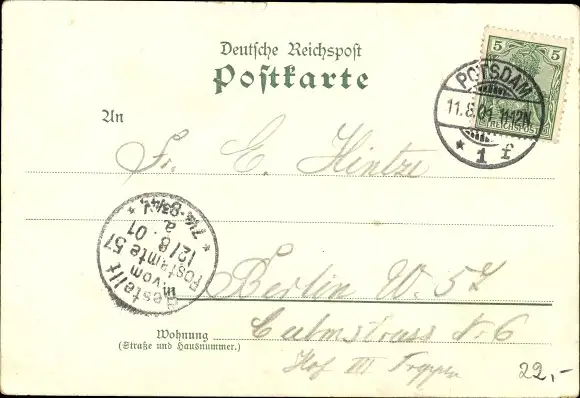 Deutsche Reichspost
Postkarte
5 5
REICHSPOST
POTSDAM
11.8.01. 11-12N.
* 1 f
An
Fr. E. Hintze
Bestellt
vom
Postamte 57
12/8.01
a.
7¼-8¾V.
in Berlin W. 57
Wohnung
(Straße und Hausnummer.)
Culmstrasse Nr. 6
Hof III Treppen
22,-